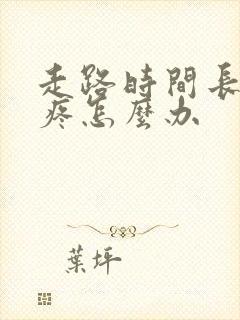 走路時間長
疼怎麼办
葉坪